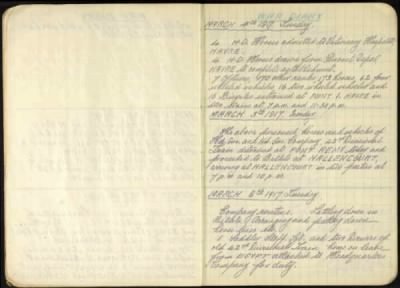 WAR DIARY
MARCH 4th 1917. Sunday.
4 H.D. Horses admitted to Veterinary Hospital
HAVRE.
4 H.D. Horses drawn from Remount Depot
HAVRE to complete establishment.
7 Officers, 170 other ranks 173 horses, 62 four
wheeled vehicles, 16 two wheeled vehicles and
16 Bicycles entrained at POINT 1, HAVRE in
two trains at 7 p.m. and 11.30 p.m.
MARCH 5th 1917. Monday
The above personnel, horses and vehicles of
and Company 42nd Divisional
Train detrained at PONT REMY today and
proceeded to Billets at HALLENCOURT,
arriving at HALLENCOURT in two parties at
7 p.m. and 10 p.m.
MARCH 6th 1917 Tuesday
Company routine. Settling down in
Billets & Arranging and
horse lines etc.
1 Saddler Staff Sgt. and two Drivers of
old 42nd Divisional Train home on leave
from EGYPT attached to Headquarters
Company for duty.